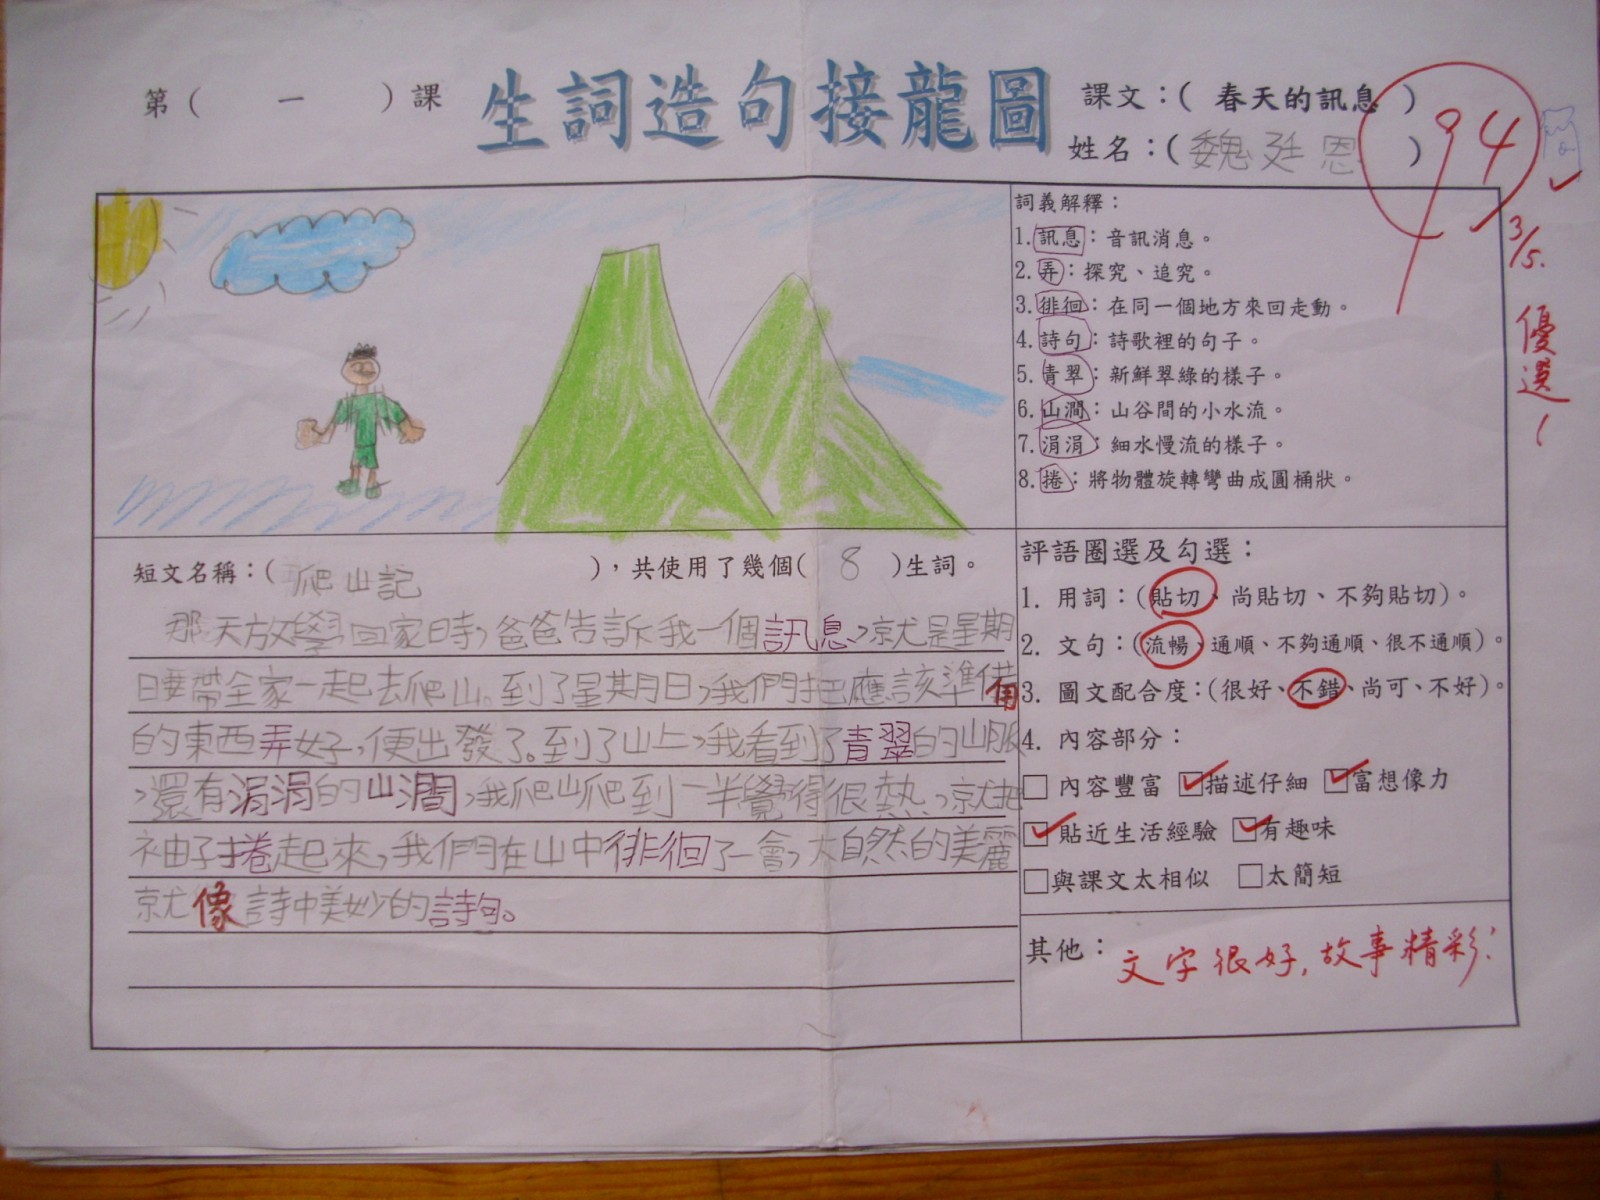 第( 一 )課
生詞造句接龍圖
課文：( 春天的訊息 )
姓名：( 魏廷恩 )
94
3/5.
優選!
詞義解釋：
1.訊息：音訊消息。
2.弄：探究、追究。
3.徘徊：在同一個地方來回走動。
4.詩句：詩歌裡的句子。
5.青翠：新鮮翠綠的樣子。
6.山澗：山谷間的小水流。
7.涓涓：細水慢流的樣子。
8.捲：將物體旋轉彎曲成圓桶狀。
短文名稱：( 爬山記 )，共使用了幾個( 8 )生詞。
那天放學回家時，爸爸告訴我一個訊息，就是星期
日要帶全家一起去爬山。到了星期日，我們把應該準備
的東西弄好，便出發了。到了山上，我看到了青翠的山脈
，還有涓涓的山澗，我爬山爬到一半覺得很熱，就把
袖子捲起來，我們在山中徘徊了一會，大自然的美麗
就像詩中美妙的詩句。
評語圈選及勾選：
1. 用詞：(貼切、尚貼切、不夠貼切)。
2. 文句：(流暢、通順、不夠通順、很不通順)。
3. 圖文配合度：(很好、不錯、尚可、不好)。
4. 內容部分：
□ 內容豐富 ☑描述仔細 ☑富想像力
☑貼近生活經驗 ☑有趣味
□與課文太相似 □太簡短
其他：文字很好，故事精彩！